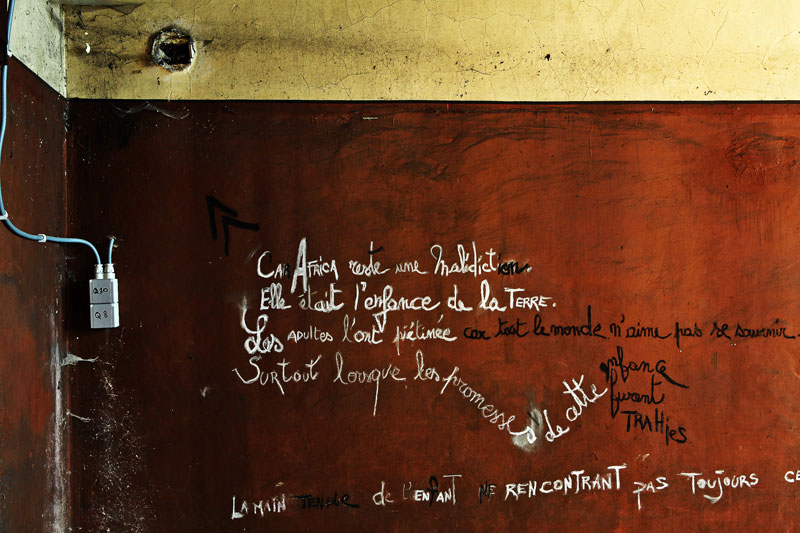 Q10
Q8
Car Africa reste une Malédiction.
Elle était l'enfance de la TERRE.
Les ADULTES l'ont piétinée car tout le monde n'aime pas se souvenir.
SURTOUT lorsque les promesses de cette enfance
furent
TRAHies
LA MAIN TENDUE de l'ENFANT NE RENCONTRANT pas Toujours CE